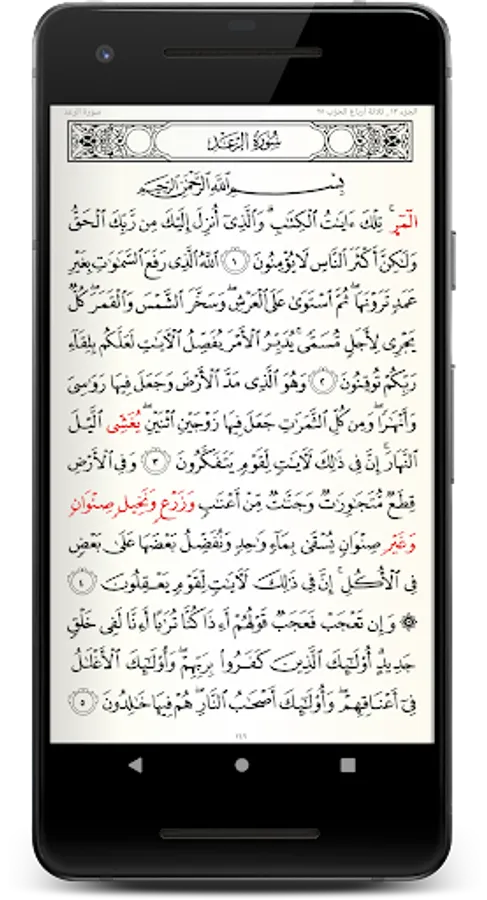 الجزء ١٣_ ثلاثة أرباع الحزب ٢٥ سورة الرعد
سُورَةُ الرَّعْدِ
بِسْمِ ٱللَّهِ ٱلرَّحْمَٰنِ ٱلرَّحِيمِ
الٓمٓرۚ تِلْكَ ءَايَٰتُ ٱلْكِتَٰبِۗ وَٱلَّذِىٓ أُنزِلَ إِلَيْكَ مِن رَّبِّكَ ٱلْحَقُّ
وَلَٰكِنَّ أَكْثَرَ ٱلنَّاسِ لَا يُؤْمِنُونَ ١ ٱللَّهُ ٱلَّذِى رَفَعَ ٱلسَّمَٰوَٰتِ بِغَيْرِ
عَمَدٍ تَرَوْنَهَاۖ ثُمَّ ٱسْتَوَىٰ عَلَى ٱلْعَرْشِۖ وَسَخَّرَ ٱلشَّمْسَ وَٱلْقَمَرَۖ كُلٌّ
يَجْرِى لِأَجَلٍ مُّسَمًّىۚ يُدَبِّرُ ٱلْأَمْرَ يُفَصِّلُ ٱلْءَايَٰتِ لَعَلَّكُم بِلِقَآءِ
رَبِّكُمْ تُوقِنُونَ ٢ وَهُوَ ٱلَّذِى مَدَّ ٱلْأَرْضَ وَجَعَلَ فِيهَا رَوَٰسِىَ
وَأَنْهَٰرًاۖ وَمِن كُلِّ ٱلثَّمَرَٰتِ جَعَلَ فِيهَا زَوْجَيْنِ ٱثْنَيْنِۖ يُغَشِّى ٱلَّيْلَ
ٱلنَّهَارَۚ إِنَّ فِى ذَٰلِكَ لَءَايَٰتٍ لِّقَوْمٍ يَتَفَكَّرُونَ ٣ وَفِى ٱلْأَرْضِ
قِطَعٌ مُّتَجَٰوِرَٰتٌ وَجَنَّٰتٌ مِّنْ أَعْنَٰبٍ وَزَرْعٍ وَنَخِيلٍ صِنْوَانٍ
وَغَيْرِ صِنْوَانٍ يُسْقَىٰ بِمَآءٍ وَٰحِدٍ وَنُفَضِّلُ بَعْضَهَا عَلَىٰ بَعْضٍ
فِى ٱلْأُكُلِۚ إِنَّ فِى ذَٰلِكَ لَءَايَٰتٍ لِّقَوْمٍ يَعْقِلُونَ ٤
۞ وَإِن تَعْجَبْ فَعَجَبٌ قَوْلُهُمْ أَءِذَا كُنَّا تُرَٰبًا أَءِنَّا لَفِى خَلْقٍ
جَدِيدٍۗ أُو۟لَٰٓئِكَ ٱلَّذِينَ كَفَرُوا۟ بِرَبِّهِمْۖ وَأُو۟لَٰٓئِكَ ٱلْأَغْلَٰلُ
فِىٓ أَعْنَاقِهِمْۖ وَأُو۟لَٰٓئِكَ أَصْحَٰبُ ٱلنَّارِۖ هُمْ فِيهَا خَٰلِدُونَ ٥
٢٤٩